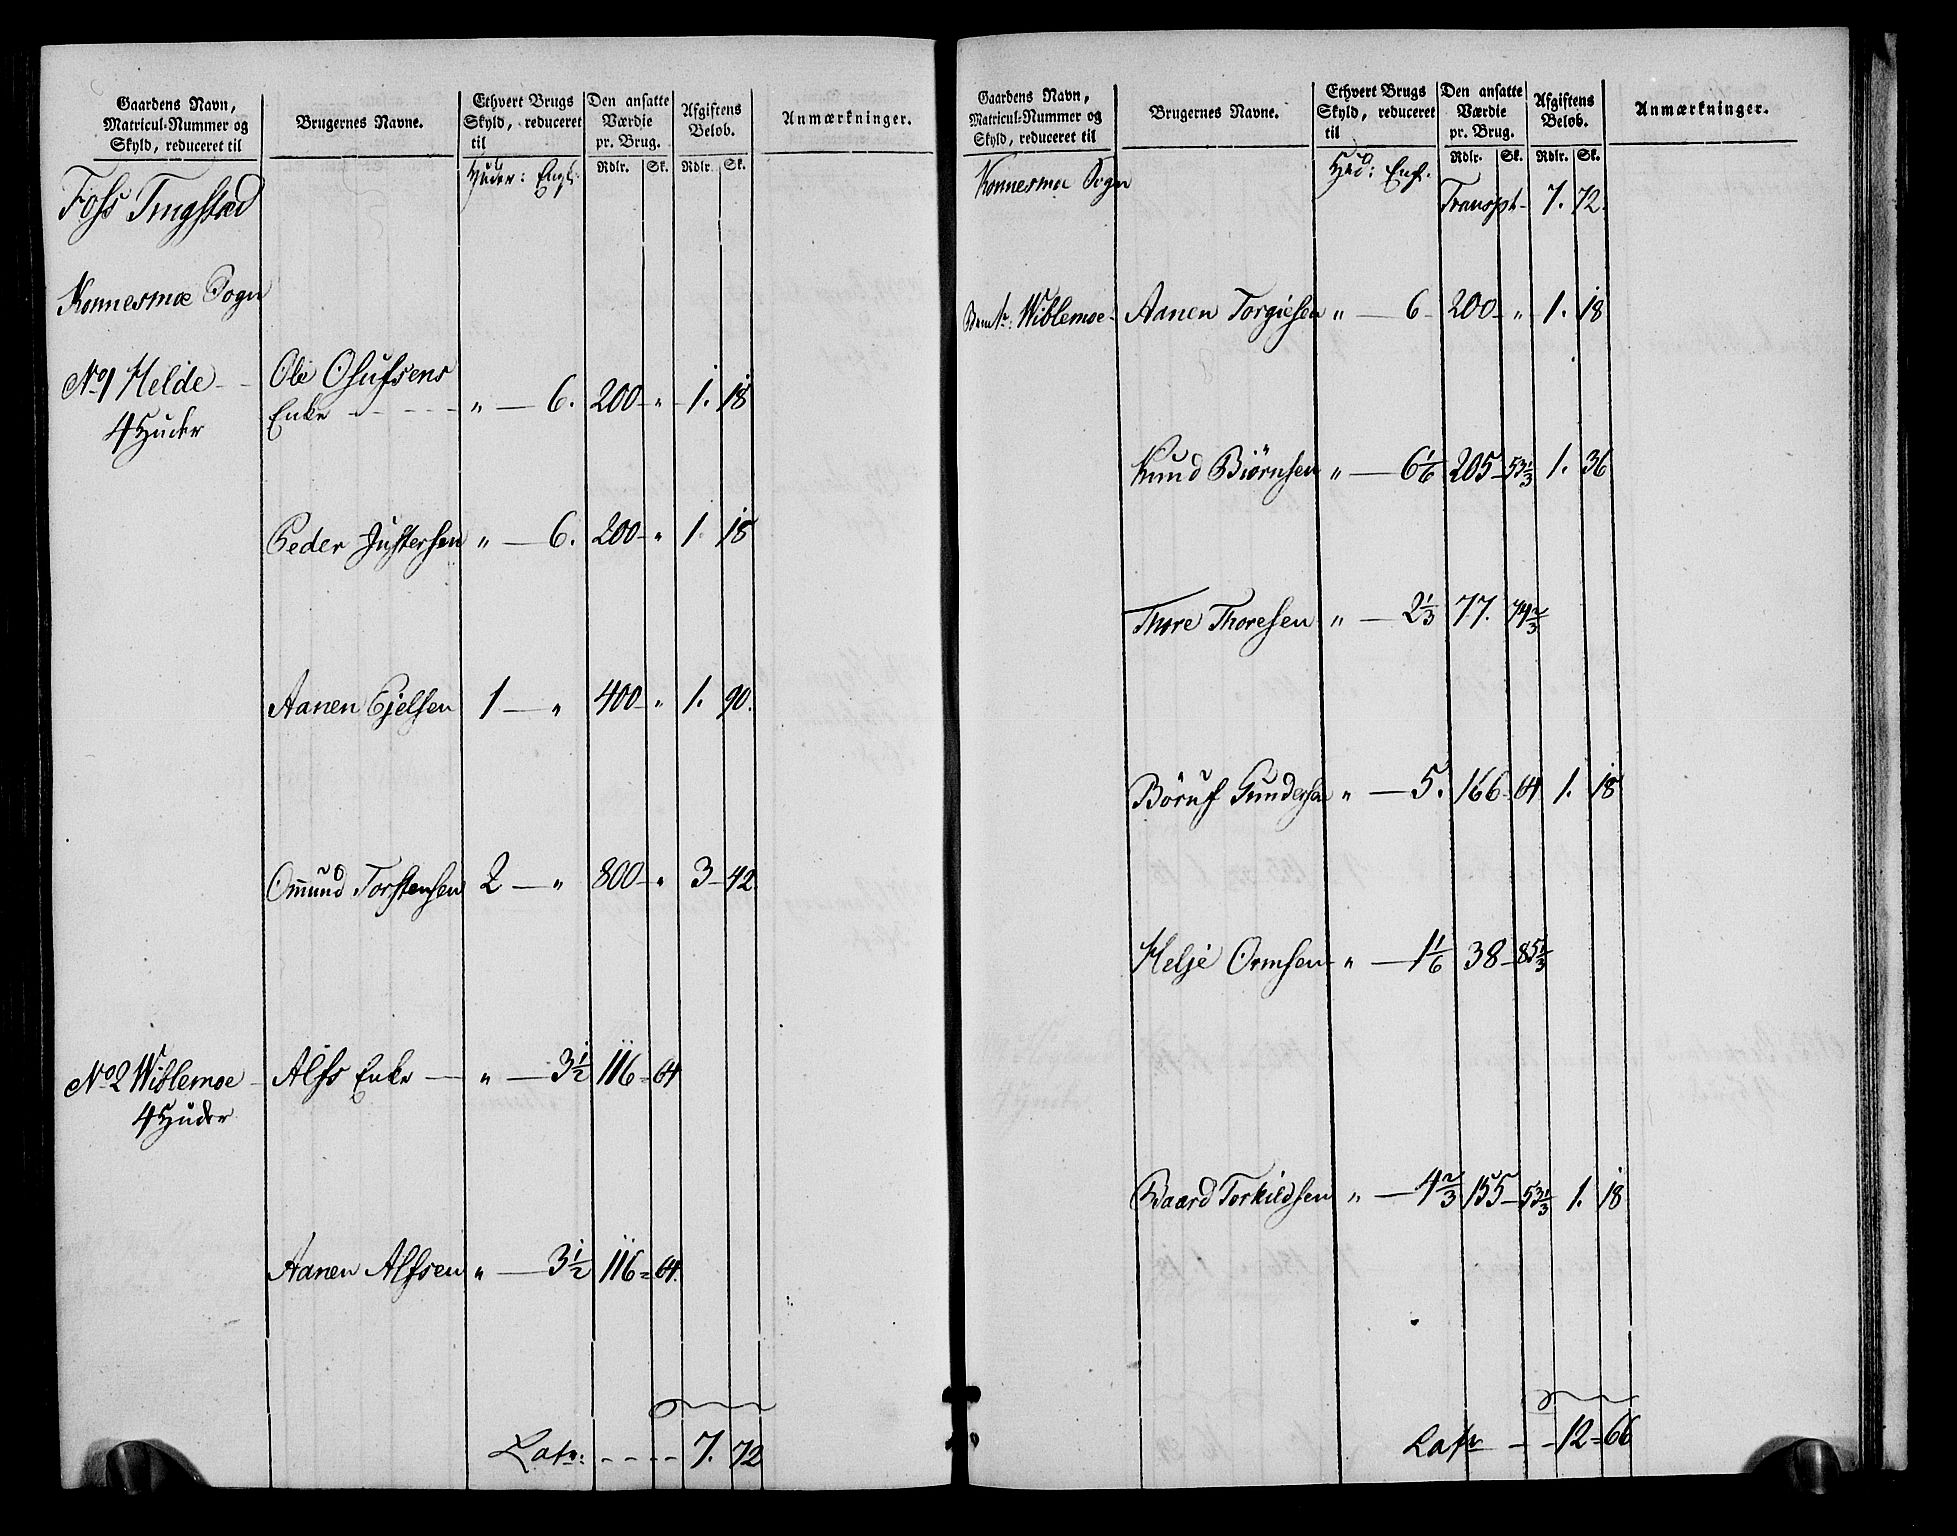 Gaardens Navn, Matricul-Nummer og Skyld, reduceret til | Brugernes Navne. | Ethvert Brugs Skyld, reduceret til | Den ansatte Værdie pr. Brug. | Afgiftens Beløb. | Anmærkninger.
Huder: Engl: | Rdlr. | Sk. | Rdlr. | Sk.
Foss Tingstæd
Konnesmoe Sogn
No 1 Helde - - Ole Olufsens
4 Huder
Enke - - - - - „ — 6. 200 - „ - 1. 18
Peder Justersen „ — 6. 200 - „ 1. 18
Aanen Ejelsen 1 — „ 400 - „ 1. 90.
Omund Torstensen 2 — „ 800 - „ 3 - 42.
No 2 Wiblemoe - Alfs Enke — „ — 3 1/2 116 = 64
4 Huder
Aanen Alfsen „ — 3 1/2 116 = 64.
Latr: - - - - 7. 72
Gaardens Navn, Matricul-Nummer og Skyld, reduceret til | Brugernes Navne. | Ethvert Brugs Skyld, reduceret til | Den ansatte Værdie pr. Brug. | Afgiftens Beløb. | Anmærkninger.
Hud: Engl. | Rdlr. | Sk. | Rdlr. | Sk.
Konnesmoe Sogn
Transpt - 7. 72.
Wiblemoe - Aanen Torgiesen „ — 6 - 200 - „ 1. 18
Knud Biörnsen „ — 6 1/6 205 - 53 1/3 1. 36
Thore Thoresen „ — 2 1/3 77. 74 2/3
Böruf Gundersen „ — 5. 166 - 64 1. 18
Helje Ormsen - „ — 1 1/6 38 - 85 1/3
Baard Torkildsen „ — 4 2/3 155 - 53 1/3 1. 18
Latr - - 12 = 66